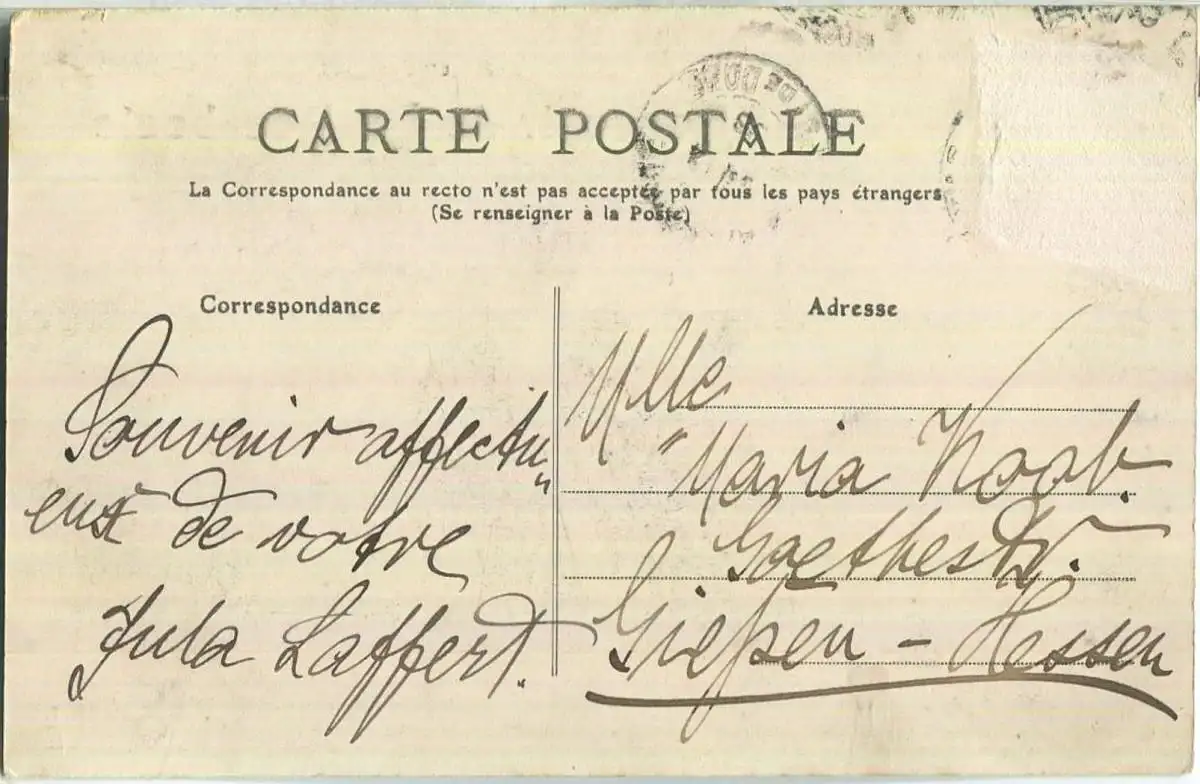 CARTE POSTALE
La Correspondance au recto n'est pas acceptée par tous les pays étrangers
(Se renseigner à la Poste)
Correspondance
Souvenir affectu„
eux de votre
Jula Laffert.
Adresse
Mlle
Maria Koob.
Goethestr.
Gießen - Hessen